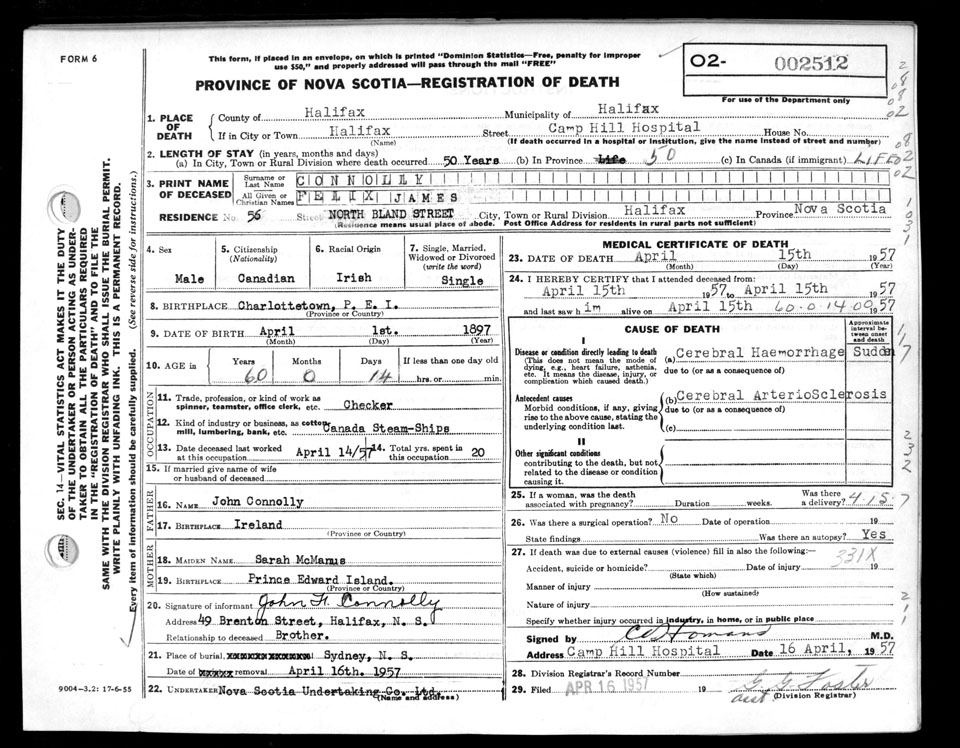 FORM 6
This form, if placed in an envelope, on which is printed "Dominion Statistics—Free, penalty for improper
use $50," and properly addressed will pass through the mail "FREE"
PROVINCE OF NOVA SCOTIA—REGISTRATION OF DEATH
O2- 002512
For use of the Department only
SEC. 14—VITAL STATISTICS ACT MAKES IT THE DUTY
OF THE UNDERTAKER OR PERSON ACTING AS UNDER-
TAKER TO OBTAIN ALL THE PARTICULARS REQUIRED
IN THE "REGISTRATION OF DEATH" AND TO FILE THE
SAME WITH THE DIVISION REGISTRAR WHO SHALL ISSUE THE BURIAL PERMIT.
WRITE PLAINLY WITH UNFADING INK. THIS IS A PERMANENT RECORD.
Every item of information should be carefully supplied. (See reverse side for instructions.)
9004-3.2: 17-6-55
1. PLACE OF DEATH
County of Halifax Municipality of Halifax
If in City or Town Halifax Street Camp Hill Hospital House No.
(Name) (If death occurred in a hospital or institution, give the name instead of street and number)
2. LENGTH OF STAY (in years, months and days)
(a) In City, Town or Rural Division where death occurred 50 Years (b) In Province Life 50 (c) In Canada (if immigrant) LIFE
3. PRINT NAME OF DECEASED
Surname or Last Name CONNOLLY
All Given or Christian Names FELIX JAMES
RESIDENCE No. 56 Street NORTH BLAND STREET City, Town or Rural Division Halifax Province Nova Scotia
(Residence means usual place of abode. Post Office Address for residents in rural parts not sufficient)
4. Sex
Male
5. Citizenship (Nationality)
Canadian
6. Racial Origin
Irish
7. Single, Married, Widowed or Divorced (write the word)
Single
8. BIRTHPLACE Charlottetown, P. E. I.
(Province or Country)
9. DATE OF BIRTH April 1st. 1897
(Month) (Day) (Year)
10. AGE Years 60 Months 0 Days 14 If less than one day old hrs. or min.
OCCUPATION
11. Trade, profession, or kind of work as
spinner, teamster, office clerk, etc. Checker
12. Kind of industry or business, as cotton
mill, lumbering, bank, etc. Canada Steam-Ships
13. Date deceased last worked at this occupation April 14/57 14. Total yrs. spent in this occupation 20
15. If married give name of wife
or husband of deceased
FATHER
16. NAME John Connolly
17. BIRTHPLACE Ireland
(Province or Country)
MOTHER
18. MAIDEN NAME Sarah McManus
19. BIRTHPLACE Prince Edward Island.
(Province or Country)
20. Signature of informant John H. Connolly
Address 49 Brenton Street, Halifax, N. S.
Relationship to deceased Brother.
21. Place of burial, xxxxxxxxxxxxxx Sydney, N. S.
Date of xxxxxx removal April 16th. 1957
22. UNDERTAKER Nova Scotia Undertaking Co. Ltd.
(Name and address)
MEDICAL CERTIFICATE OF DEATH
23. DATE OF DEATH April 15th 1957
(Month) (Day) (Year)
24. I HEREBY CERTIFY that I attended deceased from:
April 15th 1957 to April 15th 1957
and last saw him alive on April 15th 60-0-14 00 1957
CAUSE OF DEATH
Approximate interval between onset and death
I
Disease or condition directly leading to death (a) Cerebral Haemorrhage Sudden
(This does not mean the mode of dying, e.g., heart failure, asthenia, etc. It means the disease, injury, or complication which caused death.)
due to (or as a consequence of)
Antecedent causes (b) Cerebral ArterioSclerosis
Morbid conditions, if any, giving rise to the above cause, stating the underlying condition last.
due to (or as a consequence of)
(c)
II
Other significant conditions
contributing to the death, but not related to the disease or condition causing it.
25. If a woman, was the death associated with pregnancy? Duration weeks. Was there a delivery? 4.15.7
26. Was there a surgical operation? No Date of operation 19
State findings Was there an autopsy? Yes
27. If death was due to external causes (violence) fill in also the following:— 331X
Accident, suicide or homicide? Date of injury 19
(State which)
Manner of injury
(How sustained)
Nature of injury
Specify whether injury occurred in industry, in home, or in public place
Signed by M.D.
Address Camp Hill Hospital Date 16 April, 1957
28. Division Registrar's Record Number
29. Filed APR 16 1957 19 G G Foster
asst (Division Registrar)